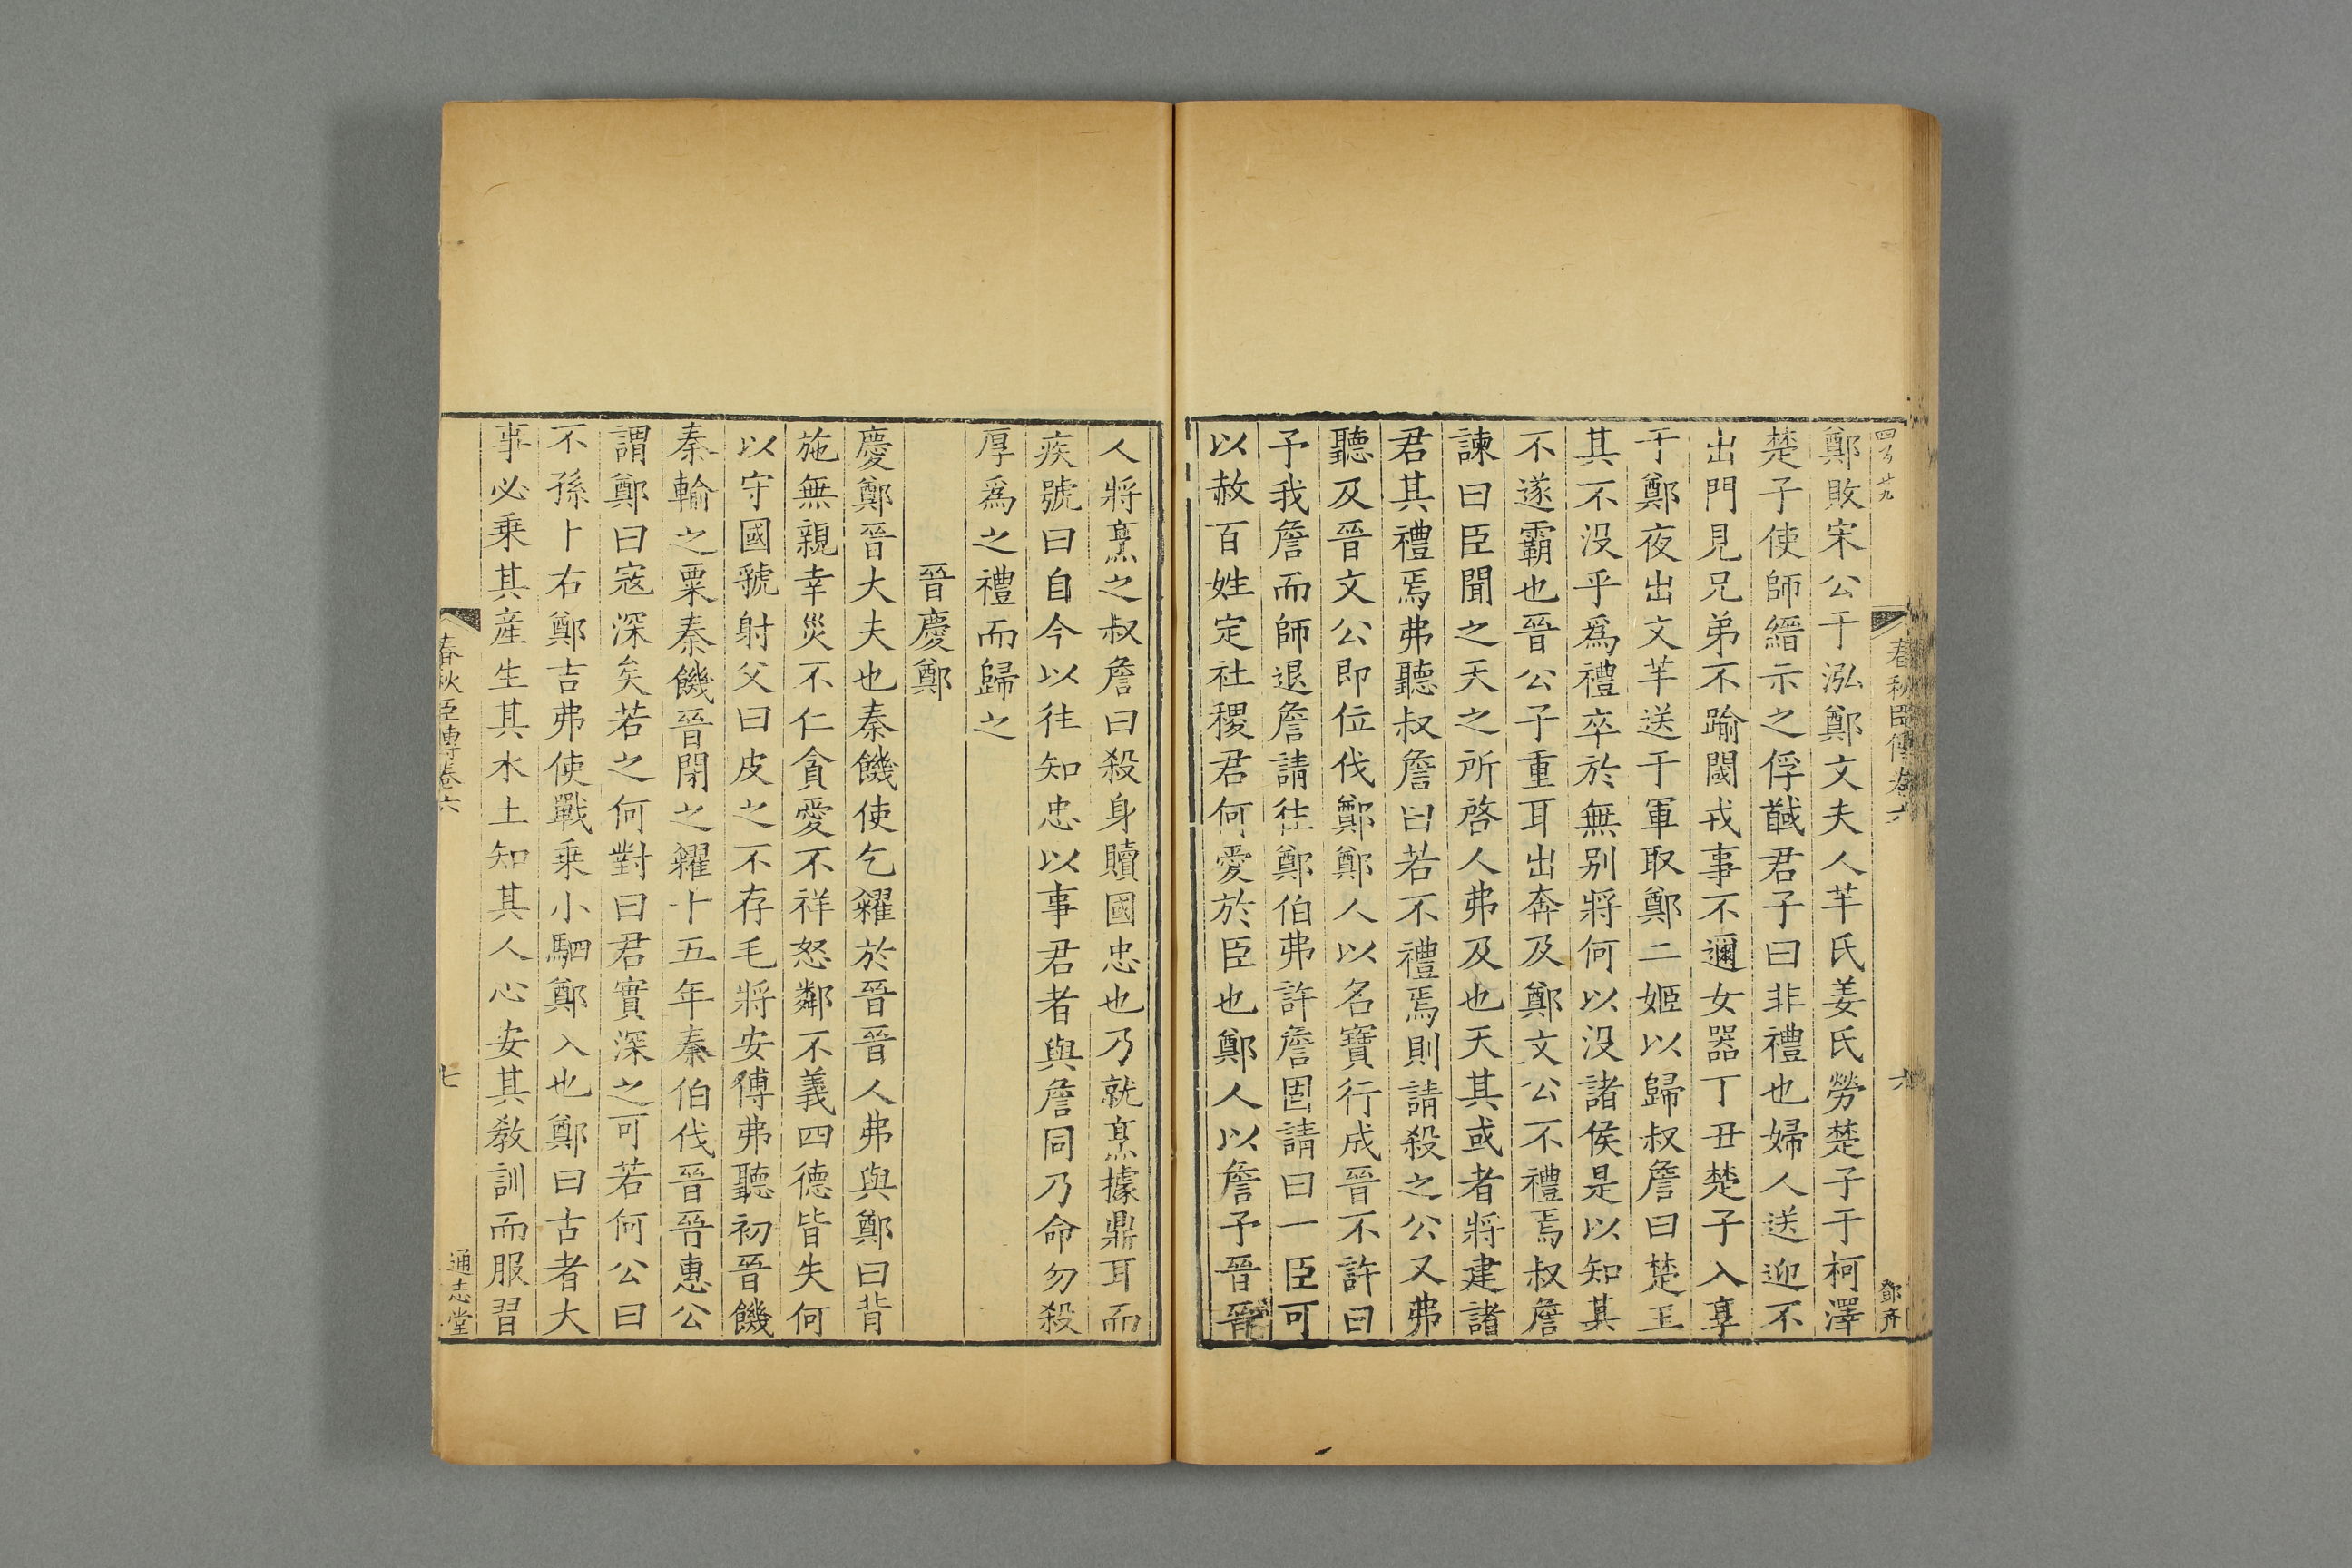 春秋臣傳卷六
六
鄧齊
鄭敗宋公于泓鄭文夫人芈氏姜氏勞楚子于柯澤
楚子使師縉示之俘馘君子曰非禮也婦人送迎不
出門見兄弟不踰閾戎事不邇女器丁丑楚子入享
于鄭夜出文芈送于軍取鄭二姬以歸叔詹曰楚王
其不没乎爲禮卒於無别將何以没諸侯是以知其
不遂霸也晉公子重耳出奔及鄭文公不禮焉叔詹
諫曰臣聞之天之所啓人弗及也天其或者將建諸
君其禮焉弗聽叔詹曰若不禮焉則請殺之公又弗
聽及晉文公即位伐鄭鄭人以名寶行成晉不許曰
予我詹而師退詹請往鄭伯弗許詹固請曰一臣可
以赦百姓定社稷君何愛於臣也鄭人以詹予晉晉
人將烹之叔詹曰殺身贖國忠也乃就烹據鼎耳而
疾號曰自今以往知忠以事君者與詹同乃命勿殺
厚爲之禮而歸之
晉慶鄭
慶鄭晉大夫也秦饑使乞糴於晉晉人弗與鄭曰背
施無親幸災不仁貪愛不祥怒鄰不義四德皆失何
以守國虢射父曰皮之不存毛將安傅弗聽初晉饑
秦輸之粟秦饑晉閉之糴十五年秦伯伐晉晉惠公
謂鄭曰寇深矣若之何對曰君實深之可若何公曰
不孫卜右鄭吉弗使戰乗小駟鄭入也鄭曰古者大
事必乗其産生其水土知其人心安其教訓而服習
春秋臣傳卷六
七
通志堂